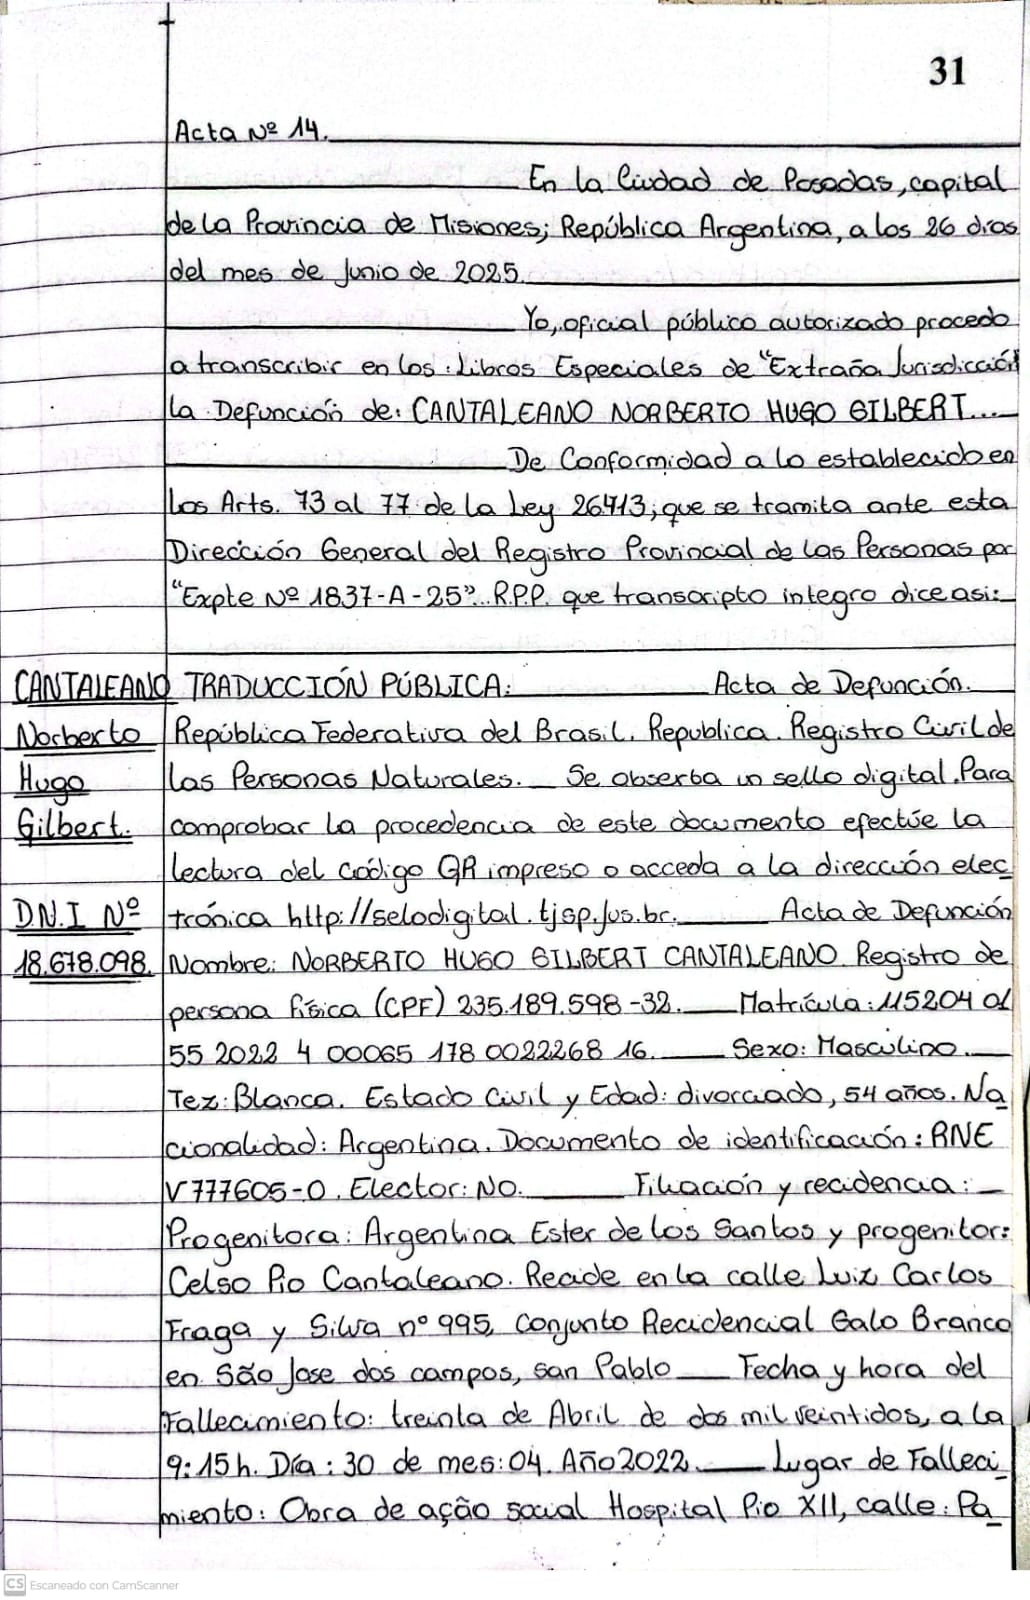 31
Acta Nº 14.
En la Ciudad de Posadas, capital
de la Provincia de Misiones; República Argentina, a los 26 días
del mes de Junio de 2025.
Yo, oficial público autorizado procedo
a transcribir en los Libros Especiales de "Extraña Jurisdicción
la Defunción de: CANTALEANO NORBERTO HUGO GILBERT...
De Conformidad a lo establecido en
los Arts. 73 al 77 de la Ley 26413; que se tramita ante esta
Dirección General del Registro Provincial de las Personas por
"Expte Nº 1837-A-25". R.P.P. que transcripto integro dice asi:
CANTALEANO TRADUCCIÓN PÚBLICA: Acta de Defunción.
Norberto República Federativa del Brasil. Republica. Registro Civil de
Hugo las Personas Naturales. Se obserba un sello digital. Para
Gilbert. comprobar la procedencia de este documento efectúe la
lectura del código QR impreso o acceda a la dirección elec
D.N.I Nº trónica http://selodigital.tjsp.jus.br. Acta de Defunción
18.678.098. Nombre: NORBERTO HUGO GILBERT CANTALEANO Registro de
persona física (CPF) 235.189.598-32. Matrícula: 115204 01
55 2022 4 00065 178 0022268 16. Sexo: Masculino.
Tez: Blanca. Estado Civil y Edad: divorciado, 54 años. Na
cionalidad: Argentina. Documento de identificación: RNE
V777605-0. Elector: No. Filiación y recidencia:
Progenitora: Argentina Ester de los Santos y progenitor:
Celso Pio Cantaleano. Recide en la calle Luiz Carlos
Fraga y Silva nº 995, Conjunto Recidencial Galo Branco
en São Jose dos campos, san Pablo Fecha y hora del
Fallecimiento: treinta de Abril de dos mil veintidos, a la
9:15 h. Día: 30 de mes: 04. Año 2022. Lugar de Falleci
miento: Obra de ação social Hospital Pio XII, calle: Pa
CS Escaneado con CamScanner